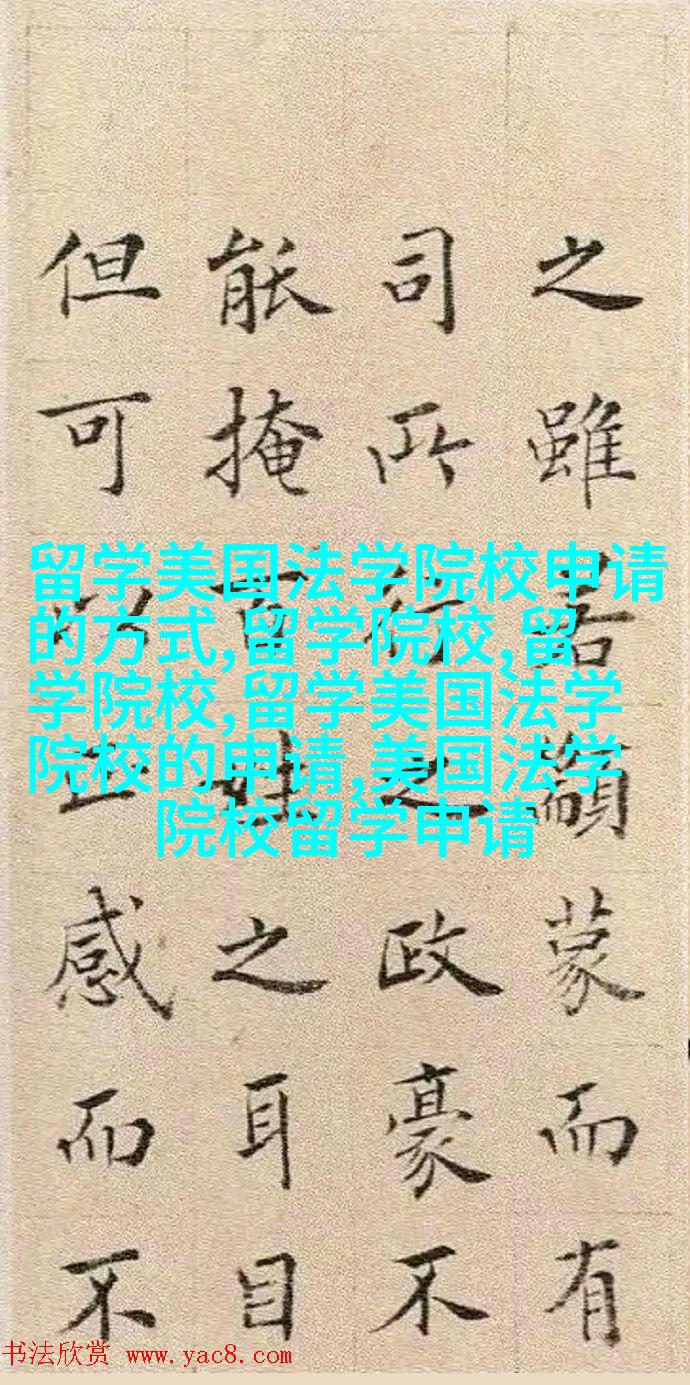 之雖若顓蒙而有
司所行之政豪不
能掩百姓之耳目
但可以上感而不
留学美国法学院校申请
的方式,留学院校,留
学院校,留学美国法学
院校的申请,美国法学
院校留学申请
书法欣赏 www.yac8.com